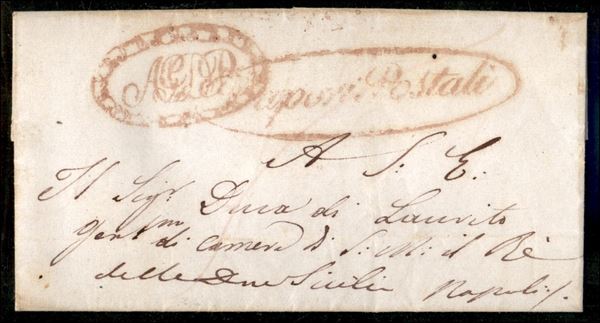 AGDP
Vapori Postali
A S. E.
Il Sigr Duca di Laurito
Gentm di camera di S. M. il Re
delle Due Sicilie Napoli